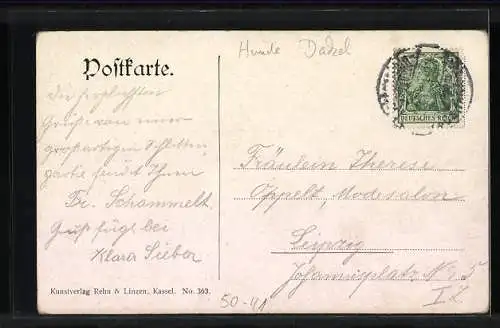 Hunde Dackel
Postkarte.
DEUTSCHES REICH
Die herzlichsten
Grüße von einer
großartigen Schlitten-
partie sendet Ihnen
Fr. Schammelt.
Gruß fügt bei
Klara Sieber
Fräulein Therese
Oppelt, Modesalon
Leipzig
Johannisplatz No 5
I Z
Kunstverlag Rehn & Linzen, Kassel. No. 363.
50-41